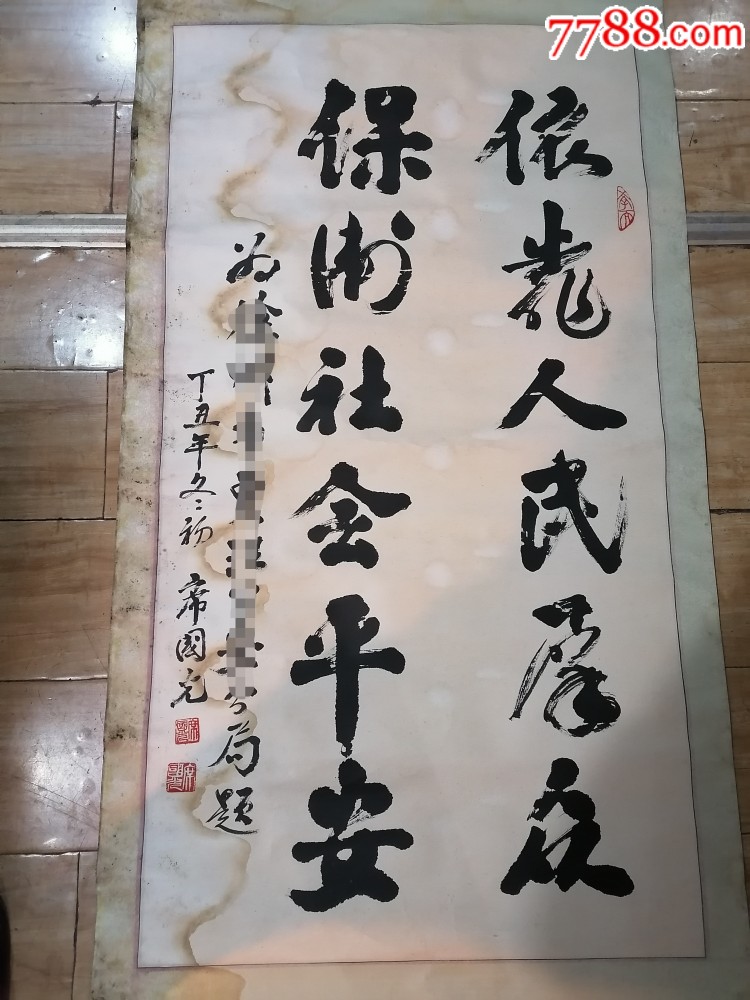 7788.com
依靠人民群众
保卫社会平安
为徐局题
丁丑年冬初 席国光